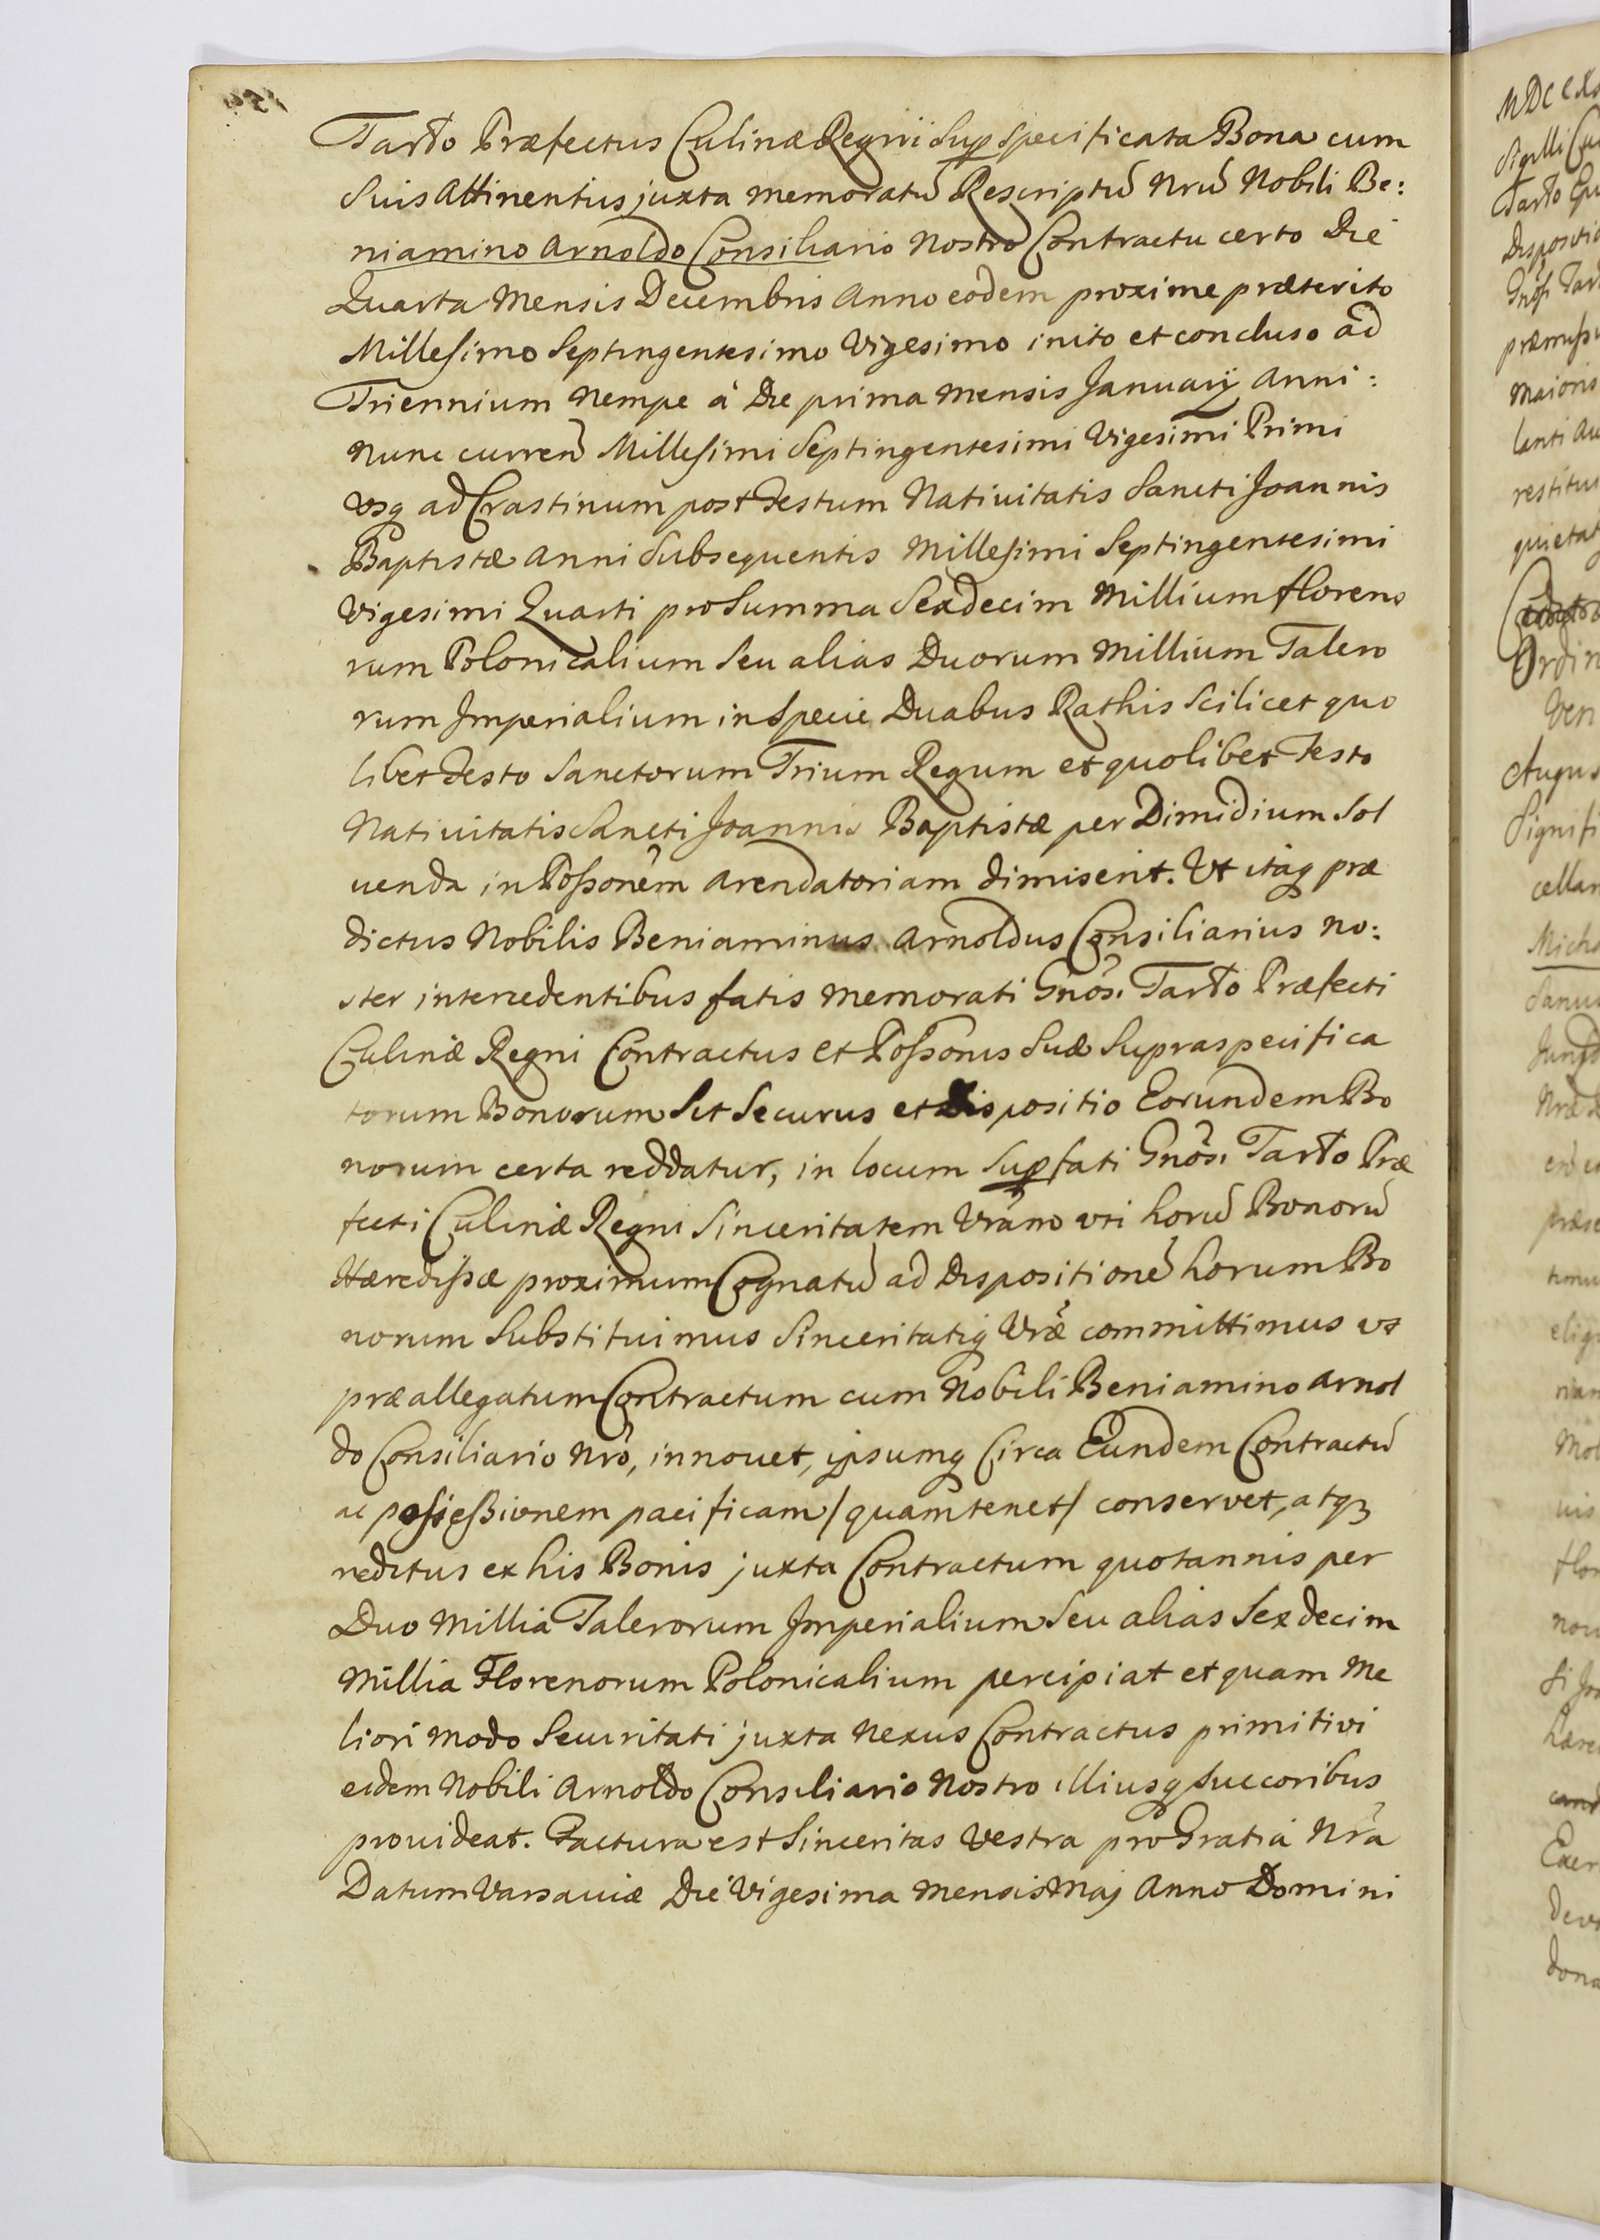 Tarło Præfectus Culinæ Regni Sup specificata Bona cum
Suis Attinentiis juxta memoratũ Rescriptũ Nrũ Nobili Be:
niamino Arnoldo Consiliario Nostro Contractu certo Die
Quarta Mensis Decembris Anno eodem proxime præterito
Millesimo Septingentesimo Vigesimo inito et concluso ad
Triennium Nempe à Die prima Mensis Januarij Anni:
Nunc curren Millesimi Septingentesimi Vigesimi Primi
Vsq ad Crastinum post Festum Nativitatis Sancti Joannis
Baptistæ Anni Subsequentis Millesimi Septingentesimi
Vigesimi Quarti pro Summa Sexdecim Millium floreno
rum Polonicalium Seu alias Duorum Millium Talero
rum Imperialium in Specie Duabus Rathis Scilicet quo
libet Festo Sanctorum Trium Regum et quolibet Festo
Nativitatis Sancti Joannis Baptistæ per Dimidium Sol
uenda in Poßonẽm Arendatoriam dimiserit. Vt itaq præ
dictus Nobilis Beniaminus Arnoldus Consiliarius No:
ster intercedentibus fatis memorati Gnõsi Tarło Præfecti
Culinæ Regni Contractus et Poßonis Suæ Supraspecifica
torum Bonorum Sit Securus et Dispositio Eorundem Bo
norum certa reddatur, in locum Supfati Gnõsi Tarło Præ
fecti Culinæ Regni Sinceritatem Vram vti horũ Bonorũ
Hæredißæ proximum Cognatũ ad Dispositionẽ horum Bo
norum Substituimus Sinceritatiq Vræ committimus vt
præallegatum Contractum cum Nobili Beniamino Arnol
do Consiliario Nrõ, innouet, ipsumq Circa Eundem Contractũ
ac possessionem pacificam /quam tenet/ conservet, atq
reditus ex his Bonis juxta Contractum quotannis per
Duo Millia Talerorum Imperialium Seu alias Sexdecim
Millia Florenorum Polonicalium percipiat et quam Me
liori modo Securitati juxta Nexus Contractus primitivi
eidem Nobili Arnoldo Consiliario Nostro illiusq Succoribus
prouideat. Factura est Sinceritas Vestra pro Gratia Nrã
Datum Varsaviæ Die Vigesima Mensis Maj Anno Domini